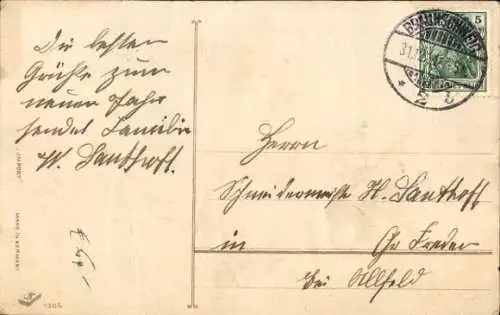 Die besten
Grüße zum
neuen Jahr
sendet Familie
W. Santhoff.
"IMPORT"
MADE IN GERMANY
1365
BRAUNSCHWEIG
31.12
* 2 c
5
Herrn
Schneidermeister H. Santhoff
in Gr Freden
bei Alfeld